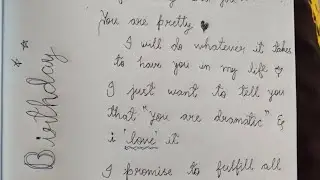 You are pretty
I will do whatever it takes
to have you in my life &
I just want to tell you
that "you are dramatic" &
i 'love' it
I promise to fulfill all
Birthday